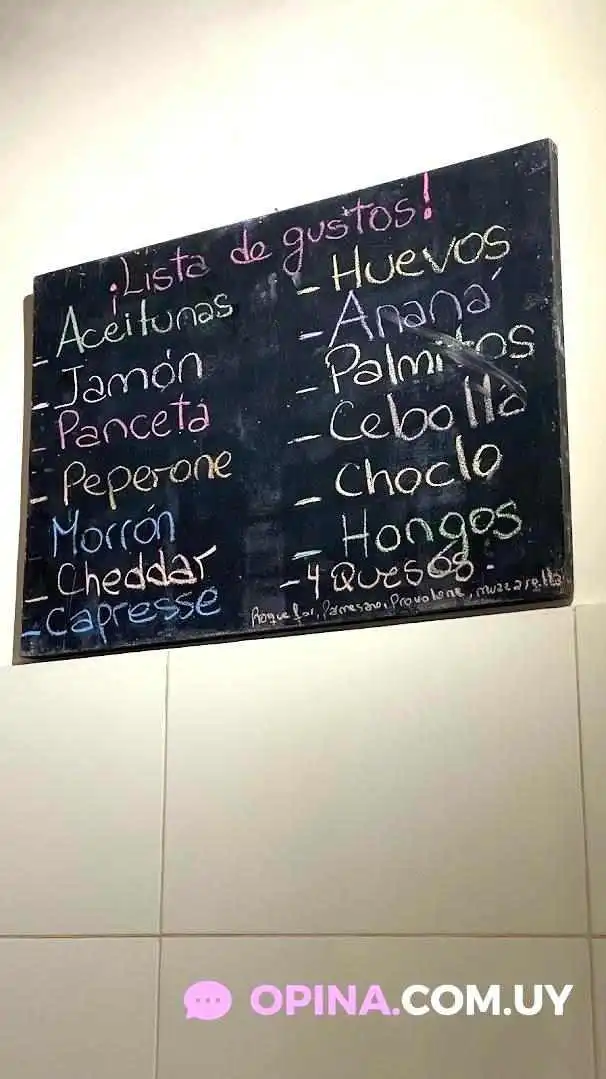 ¡Lista de gustos!
- Aceitunas
- Jamón
- Panceta
- Peperone
- Morrón
- Cheddar
- Capresse
- Huevos
- Ananá
- Palmitos
- Cebolla
- Choclo
- Hongos
- 4 Quesos:
Roquefor, Parmesano, Provolone, muzzarella
OPINA.COM.UY